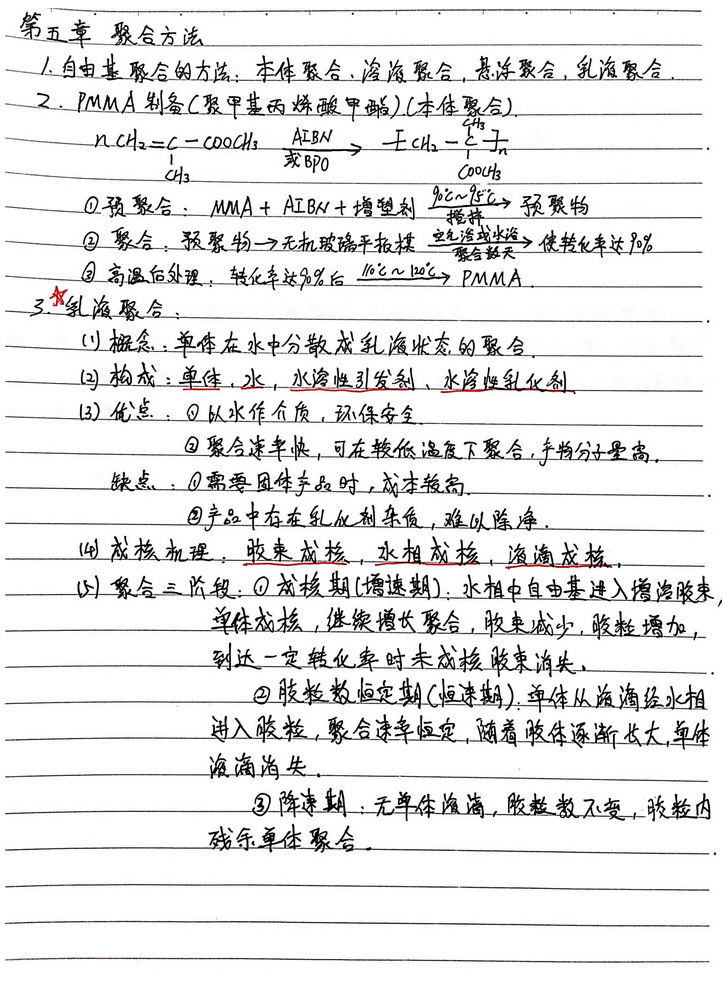 第五章 聚合方法
1. 自由基聚合的方法：本体聚合、溶液聚合，悬浮聚合，乳液聚合.
2. PMMA 制备(聚甲基丙烯酸甲酯)(本体聚合)
nCH₂=C-COOCH₃ AIBN 或BPO → -[CH₂-C]-n
CH₃ CH₃ COOCH₃
①预聚合：MMA+AIBN+增塑剂 90℃~95℃ 搅拌 → 预聚物
② 聚合：预聚物→无机玻璃平板模 空气浴或水浴 聚合数天 → 使转化率达90%
③ 高温后处理：转化率达90%后 110℃~120℃ → PMMA.
3. ☆乳液聚合：
(1) 概念：单体在水中分散成乳液状态的聚合.
(2) 构成：单体、水，水溶性引发剂、水溶性乳化剂.
(3) 优点：①以水作介质，环保安全.
②聚合速率快，可在较低温度下聚合，产物分子量高.
缺点：①需要固体产品时，成本较高.
②产品中存在乳化剂杂质，难以除净.
(4) 成核机理：胶束成核，水相成核，液滴成核.
(5) 聚合三阶段：①成核期(增速期)：水相中自由基进入增溶胶束，
单体成核，继续增长聚合，胶束减少，胶粒增加，
到达一定转化率时未成核胶束消失.
②胶粒数恒定期(恒速期)：单体从液滴经水相
进入胶粒，聚合速率恒定，随着胶体逐渐长大，单体
液滴消失.
③降速期：无单体液滴，胶粒数不变，胶粒内
残余单体聚合。